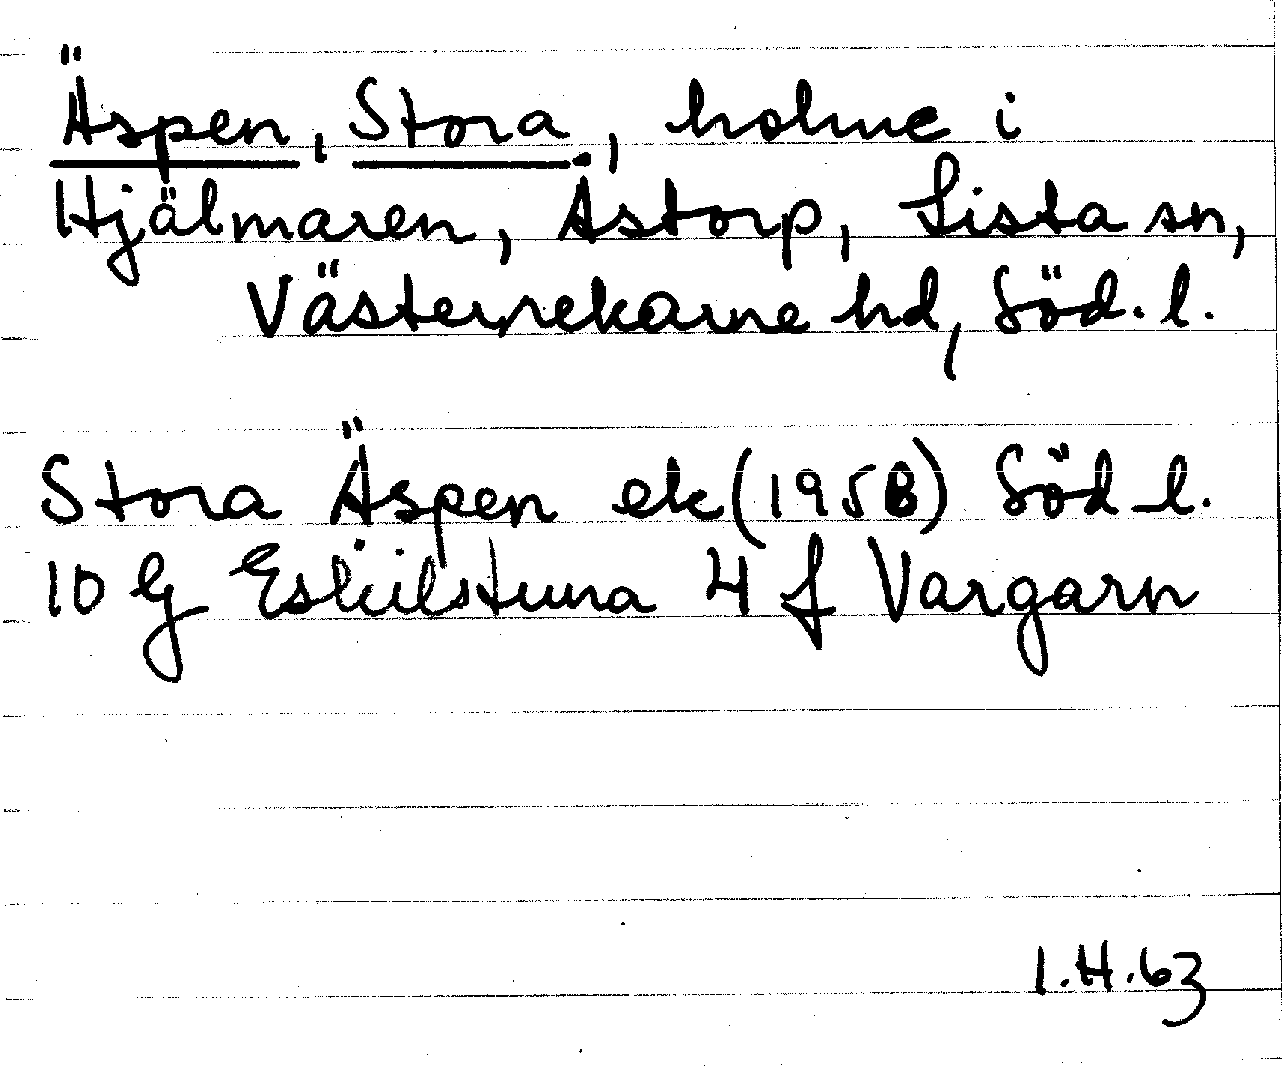 Äspen, Stora, holme i
Hjälmaren, Åstorp, Lista sn,
Västerrekarne hd, Söd. l.
Stora Äspen ek (1958) Söd l.
10 G Eskilstuna 4 f Vargarn
I.H.63